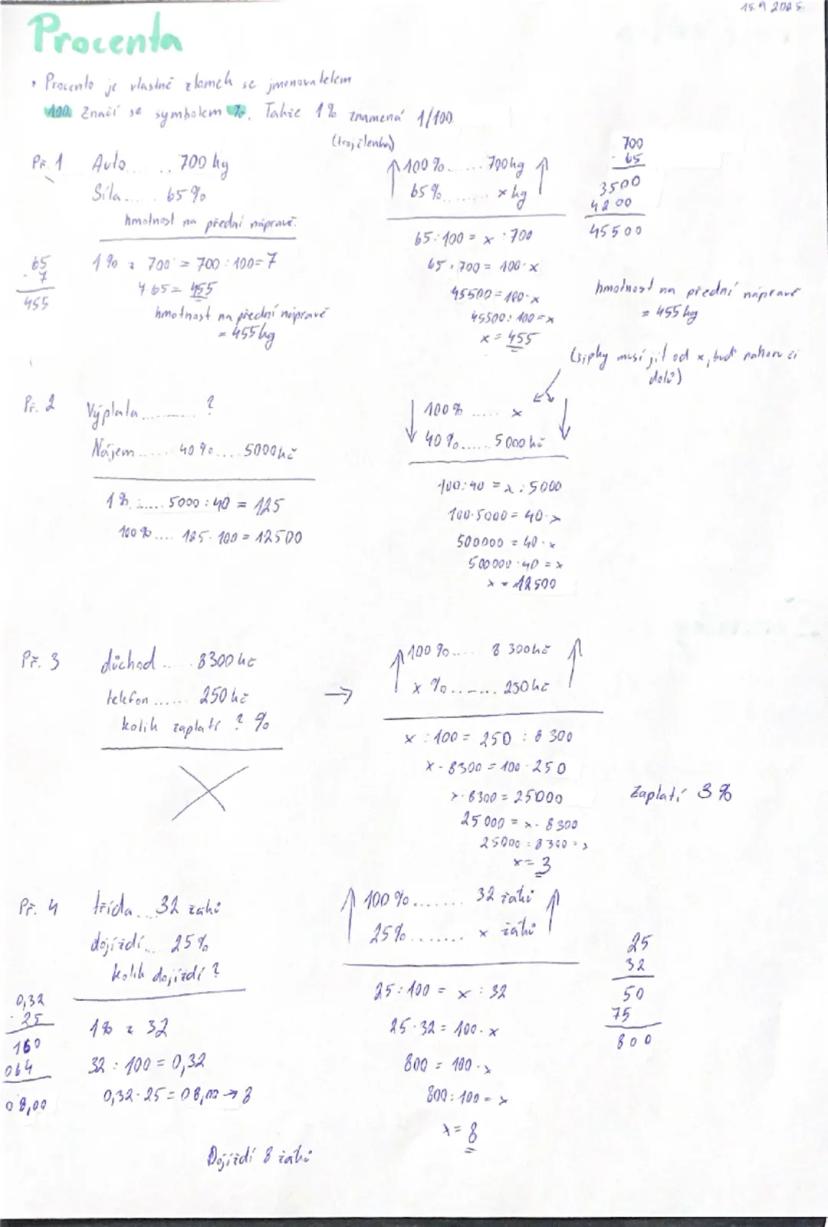 15.9.2025
Procenta
• Procento je vlastně zlomek se jmenovatelem
100. Značí se symbolem %. Takže 1% znamená 1/100
(trojčlenka)
Př. 1 Auto ..... 700 kg
Síla.... 65%
hmotnost na přední nápravě.
1% z 700 = 700 : 100 = 7
· 65 = 455
hmotnost na přední nápravě
= 455kg
65
· 7
455
↑ 100%...... 700kg ↑
65%....... x kg
65:100 = x : 700
65·700 = 100·x
45500 = 100·x
45500:100 = x
x = 455
700
· 65
3500
4200
45500
hmotnost na přední nápravě
= 455 kg
(šipky musí jít od x, buď nahoru či
dolů)
Př. 2 Výplata........... ?
Nájem...... 40%.... 5000kč
1%...... 5000:40 = 125
100%.... 125·100 = 12500
↓ 100% ..... x ↓
40%...... 5000kč
100:40 = x : 5000
100·5000 = 40·x
500000 = 40·x
500000:40 = x
x = 12500
Př. 3 důchod .... 8300 kč
telefon ...... 250 kč
kolik zaplatí ? %
→
↑ 100%.... 8300kč ↑
x %....... 250kč
x : 100 = 250 : 8300
x·8300 = 100·250
x·8300 = 25000
25000 = x·8300
25000:8300 = x
x = 3
Zaplatí 3%
Př. 4 třída... 32 žáků
dojíždí... 25%
kolik dojíždí ?
1% z 32
32 : 100 = 0,32
0,32·25 = 08,00 → 8
0,32
· 25
160
064
08,00
Dojíždí 8 žáků
↑ 100%....... 32 žáků ↑
25%........ x žáků
25:100 = x : 32
25·32 = 100·x
800 = 100·x
800:100 = x
x = 8
25
32
50
75
800